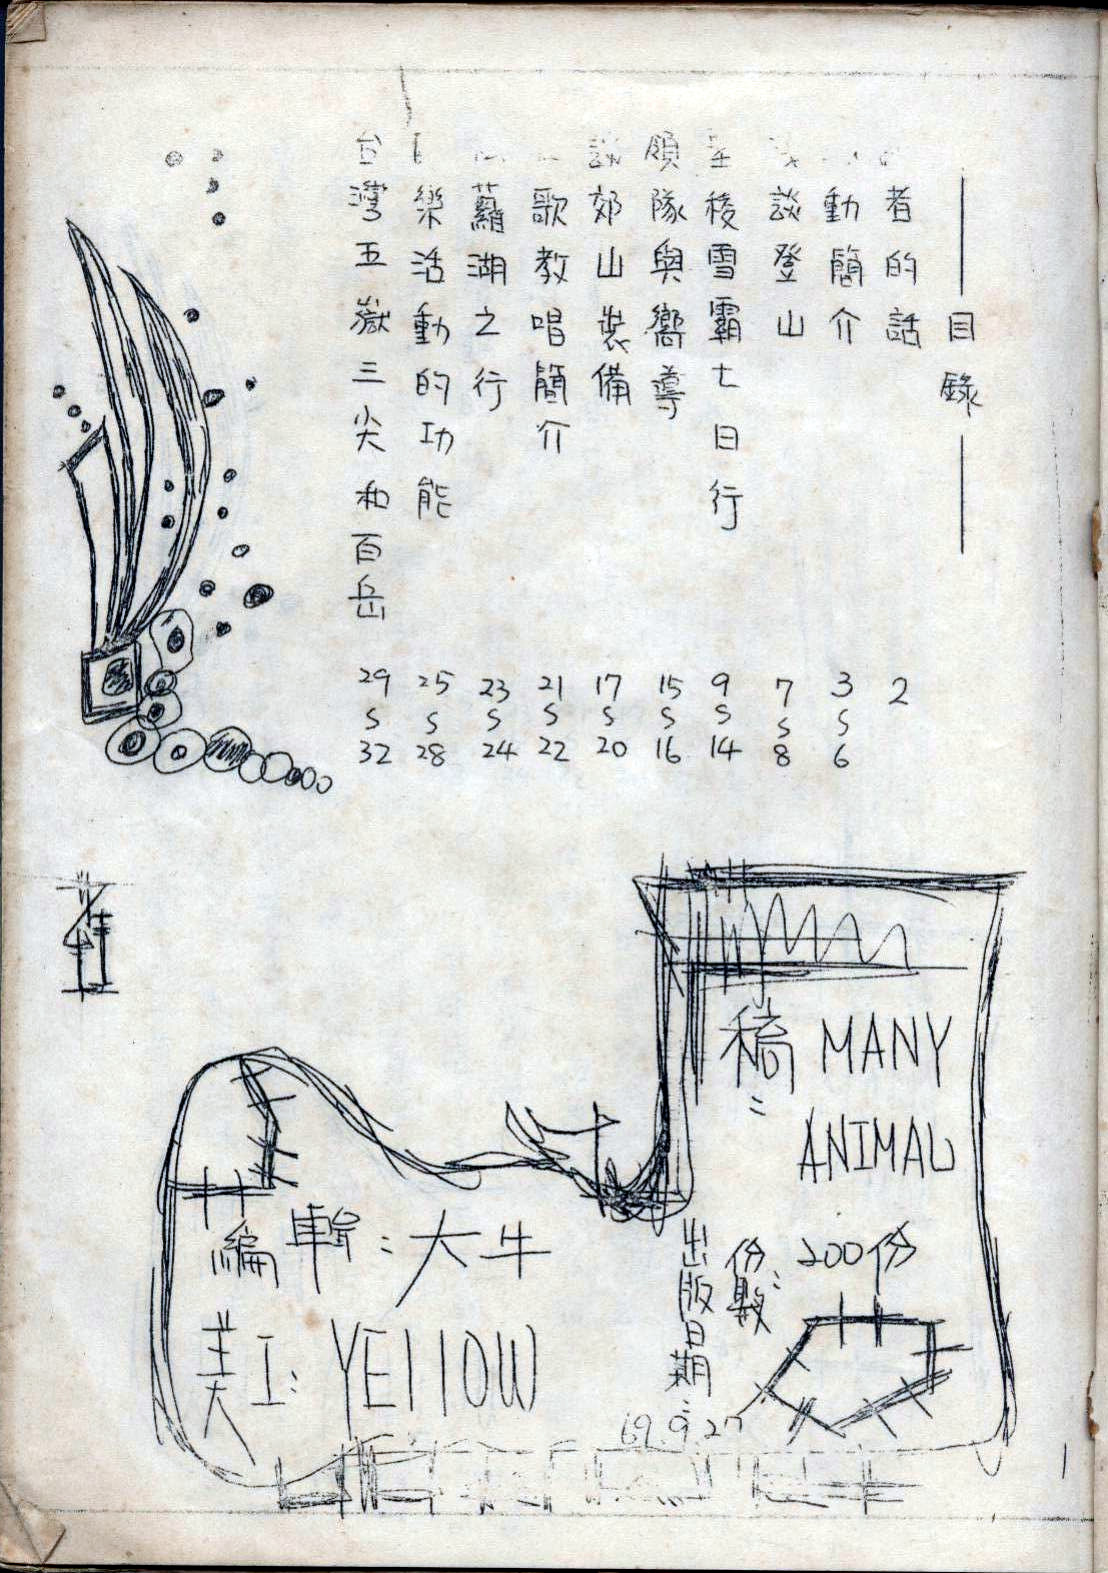 目錄
者的話 2
動簡介 3~6
談登山 7~8
稜雪霸七日行 9~14
領隊與嚮導 15~16
談郊山裝備 17~20
歌教唱簡介 21~22
蘿湖之行 23~24
樂活動的功能 25~28
台灣五嶽三尖和百岳 29~32
稿: MANY
ANIMAL
份數: 200份
出版日期: 69 9 27
編輯: 大牛
美工: YEllOW
1